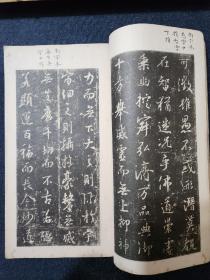 可徵雖愚不惑形潛莫覩
在智猶迷况乎佛道崇虛
乘幽控寂弘濟萬品典御
十方舉威靈而無上抑神
力而無下大之則彌於宇
宙細之則攝於豪釐無滅
無生歷千劫而不古若隱
若顯運百福而長今妙道